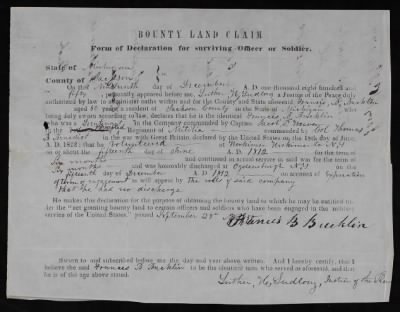 BOUNTY LAND CLAIM
Form of Declaration for surviving Officer or Soldier.
State of Michigan
County of Jackson
On the Nineteenth day of December A. D. one thousand eight hundred and
fifty personally appeared before me, Luther H. Ludlong, a Justice of the Peace duly
authorized by law to administer oaths within and for the County and State aforesaid Francis B. Bucklin
aged 60 years a resident of Jackson County in the State of Michigan who
being duly sworn according to law, declares that he is the identical Francis B. Bucklin
who was a in the Company commanded by Captain
in the Regiment of Militia commanded by Col. Thomas
in the war with Great Britain, declared by the United States on the 18th day of June,
A. D. 1812: that he Volunteered at Herkimer N.Y
on or about the fifteenth day of June A. D. 1812 for the term of
Six months and continued in actual service in said war for the term of
Six months and was honorably discharged at Ogdensburgh N.Y on the
fifteenth day of December A. D. 1812 on account of Expiration
of term of engagement as will appear by The rolls of said company
that he has no discharge
He makes this declaration for the purpose of obtaining the bounty land to which he may be entitled to under
the "act granting bounty land to certain officers and soldiers who have been engaged in the military
service of the United States." passed September 28th
Francis B Bucklin
Sworn to and subscribed before me the day and year above written. And I hereby certify, that I
believe the said Francis B Bucklin to be the identical man who served as aforesaid, and that he
is of the age above stated.
Luther, H, Ludlong, Justice of the Peace